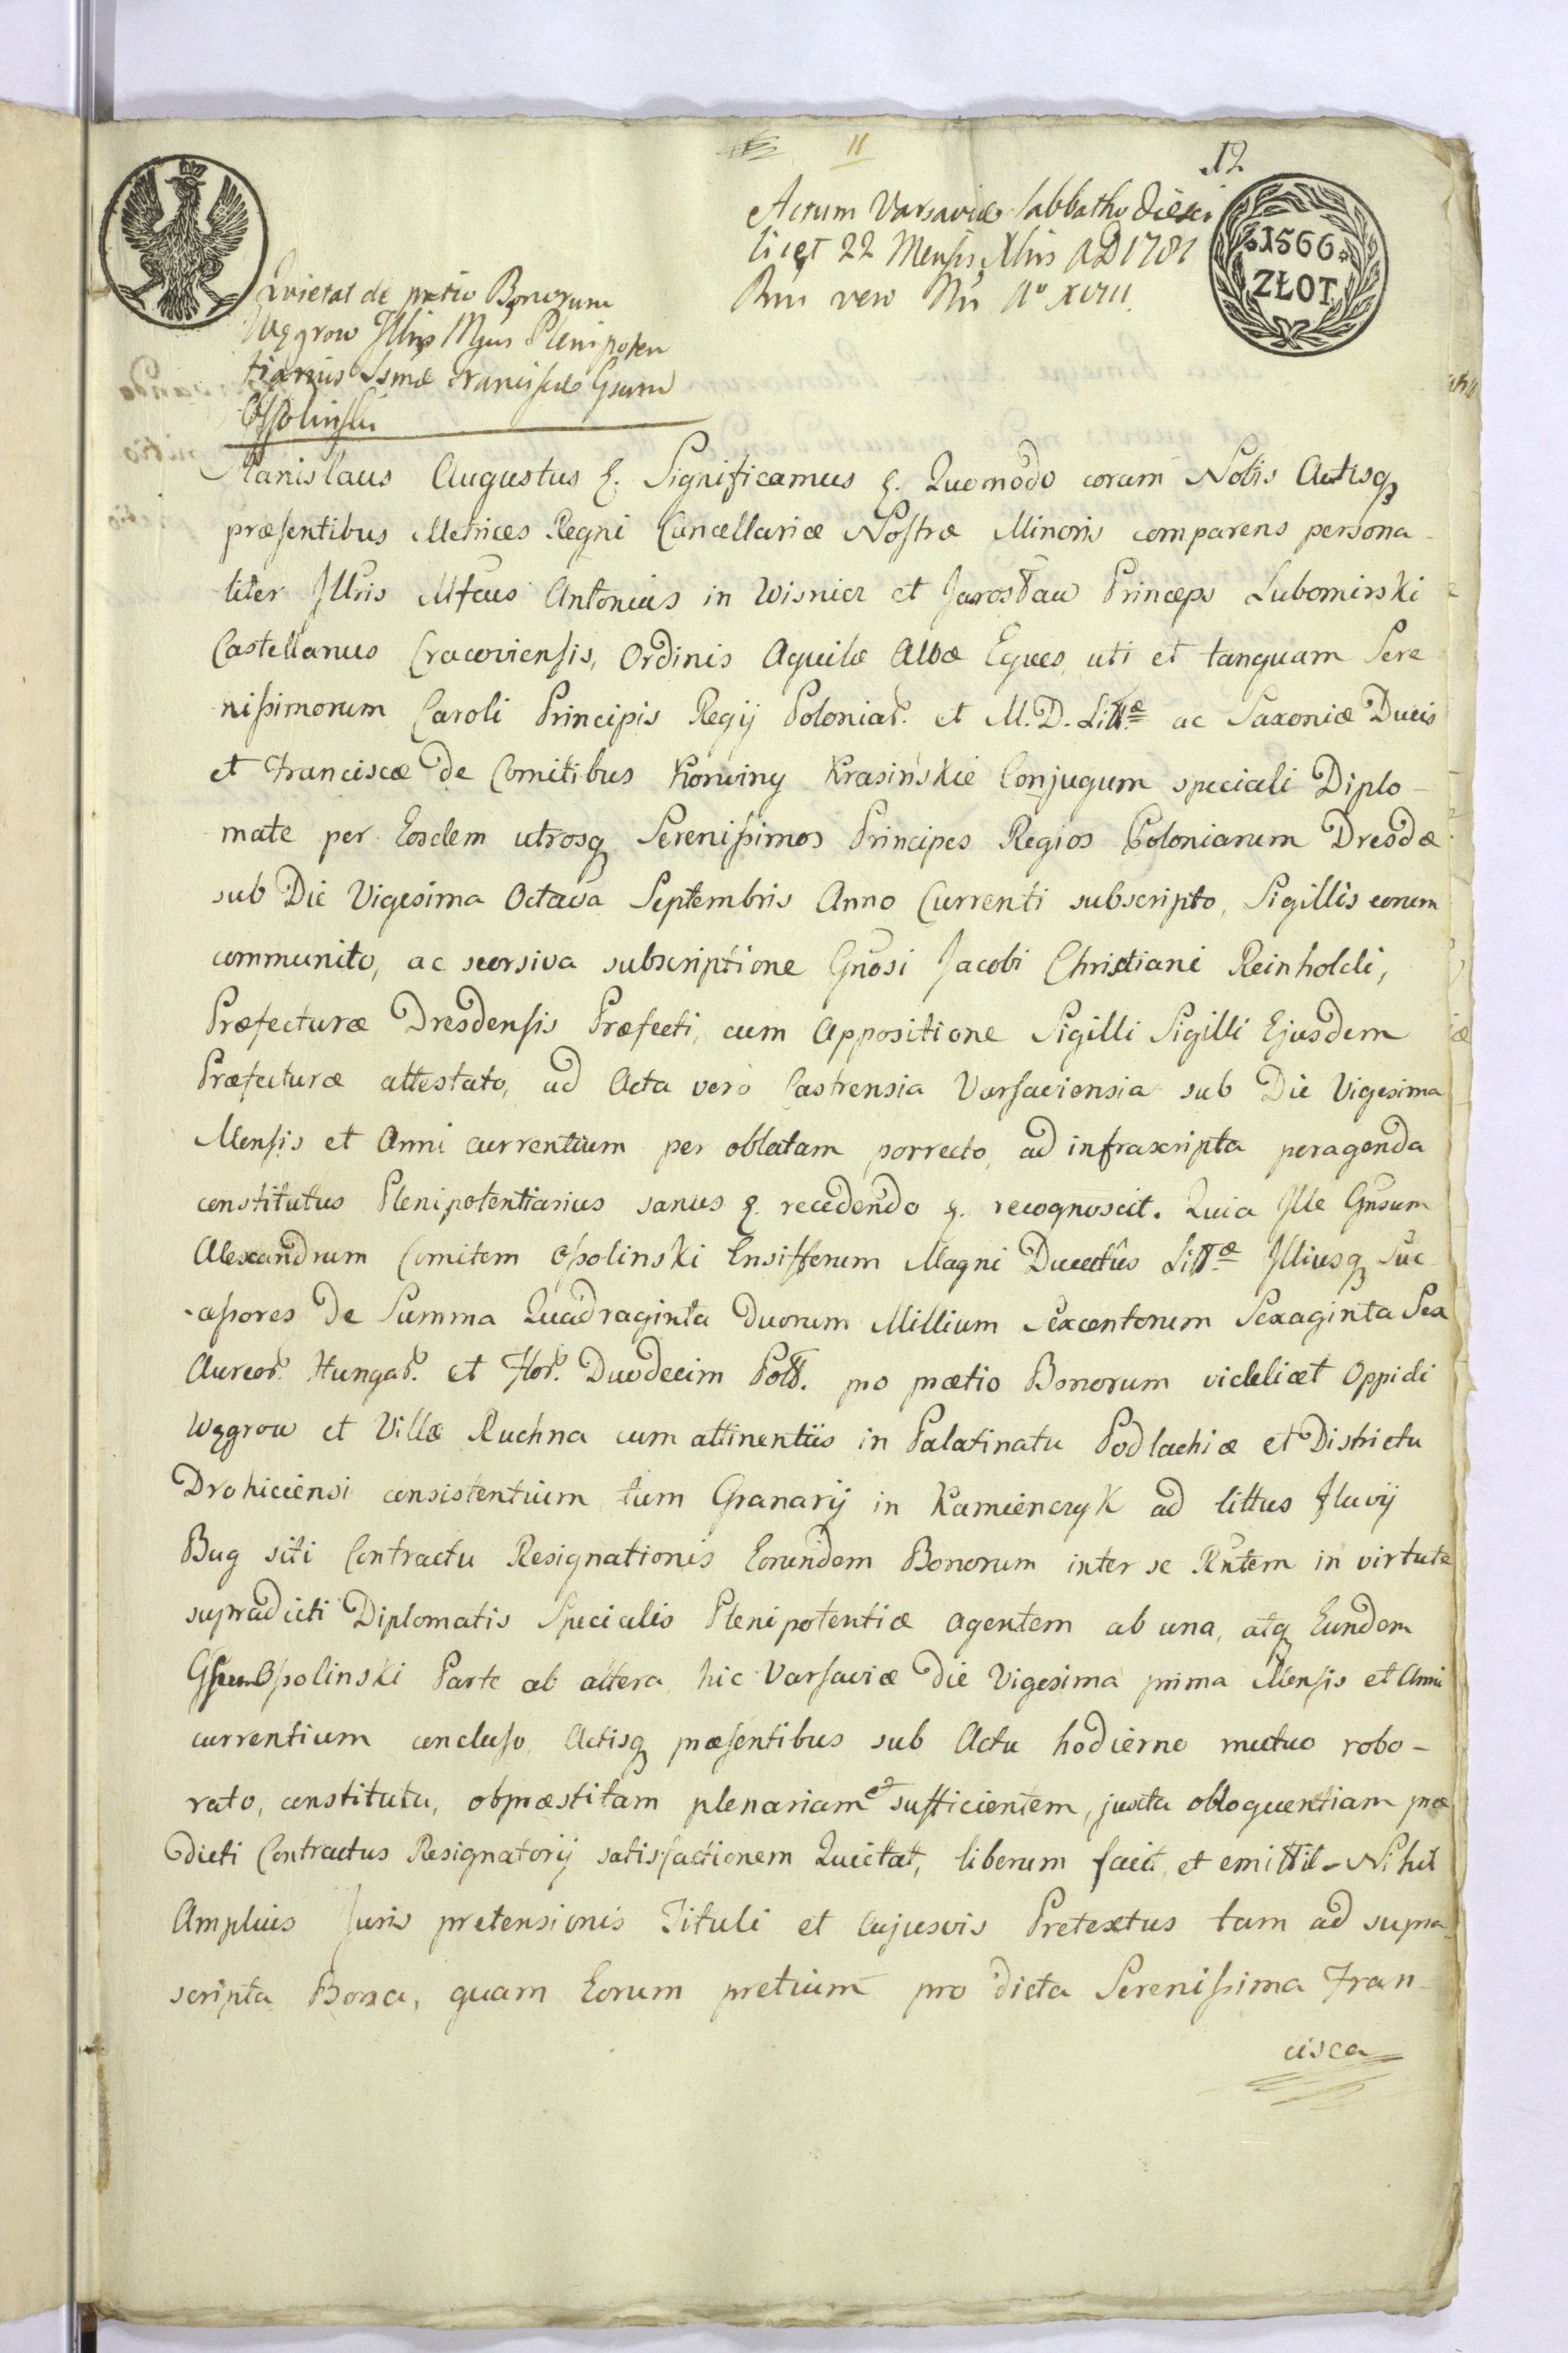 11
12
Actum Varsaviæ Sabbatho die sci
licet 22 Mensis Xbris AD 1781
Rni vero Nri Aº XVIII.
1566
ZŁOT
Quietat de prætio Bonorum
Węgrow Illris Mgus Plenipoten
tiarius Ssmæ Franciscæ Gsum
Ossolinski
Stanislaus Augustus &. Significamus &. Quomodo coram Nobis Actisq
præsentibus Metrices Regni Cancellariæ Nostræ Minoris comparens persona-
liter Illris Mfcus Antonius in Wisnicz et Jarosłau Princeps Lubomirski
Castellanus Cracoviensis, Ordinis Aquilæ Albæ Eques, uti et tanquam Sere
nissimorum Caroli Principis Regij Poloniar. et M. D. Littæ ac Saxoniæ Ducis
et Franciscæ De Comitibus Korwiny Krasińskie Conjugum speciali Diplo-
mate per Eosdem utrosq Serenissimos Principes Regios Poloniarum Dresdæ
sub Die Vigesima Octava Septembris Anno Currenti subscripto, Sigillis eorum
communito, ac seorsiva subscriptione Gnosi Jacobi Christiani Reinholdi,
Præfecturæ Dresdensis Præfecti, cum Appositione Sigilli Sigilli Ejusdem
Præfecturæ attestato, ad Acta vero Castrensia Varsaviensia sub Die Vigesima
Mensis et Anni currentium per oblatam porrecto, ad infrascripta peragenda
constitutus Plenipotentiarius sanus &. recedendo &. recognoscit. Quia Ille Gnsum
Alexandrum Comitem Ossolinski Ensifferum Magni Ducatûs Littæ Illiusq Suc
cessores De Summa Quadraginta Duorum Millium Sexcentorum Sexaginta Sex
Aureor. Hungar. et Flor. Duodecim Poll. pro prætio Bonorum videlicet Oppidi
Węgrow et Villæ Ruchna cum attinentiis in Palatinatu Podlachiæ et Districtu
Drohiciensi consistentium, tum Granarij in Kamienczyk ad littus fluvij
Bug siti Contractu Resignationis Eorundem Bonorum inter se Rntem in virtute
supradicti Diplomatis Specialis Plenipotentiæ agentem ab una, atq Eundem
Gsum Ossolinski Parte ab altera, hic Varsaviæ Die Vigesima prima Mensis et Anni
currentium concluso, Actisq præsentibus sub Actu hodierno mutuo robo-
rato, constituta, obpræstitam plenariam et sufficientem, juxta obloquentiam præ
dicti Contractus Resignatorij satisfactionem Quietat, liberum facit, et emittit - Nihil
Amplius Juris pretensionis Tituli et Cujusvis Pretextus tam ad supra-
scripta Bona, quam Eorum pretium pro dicta Serenissima Fran-
cisca